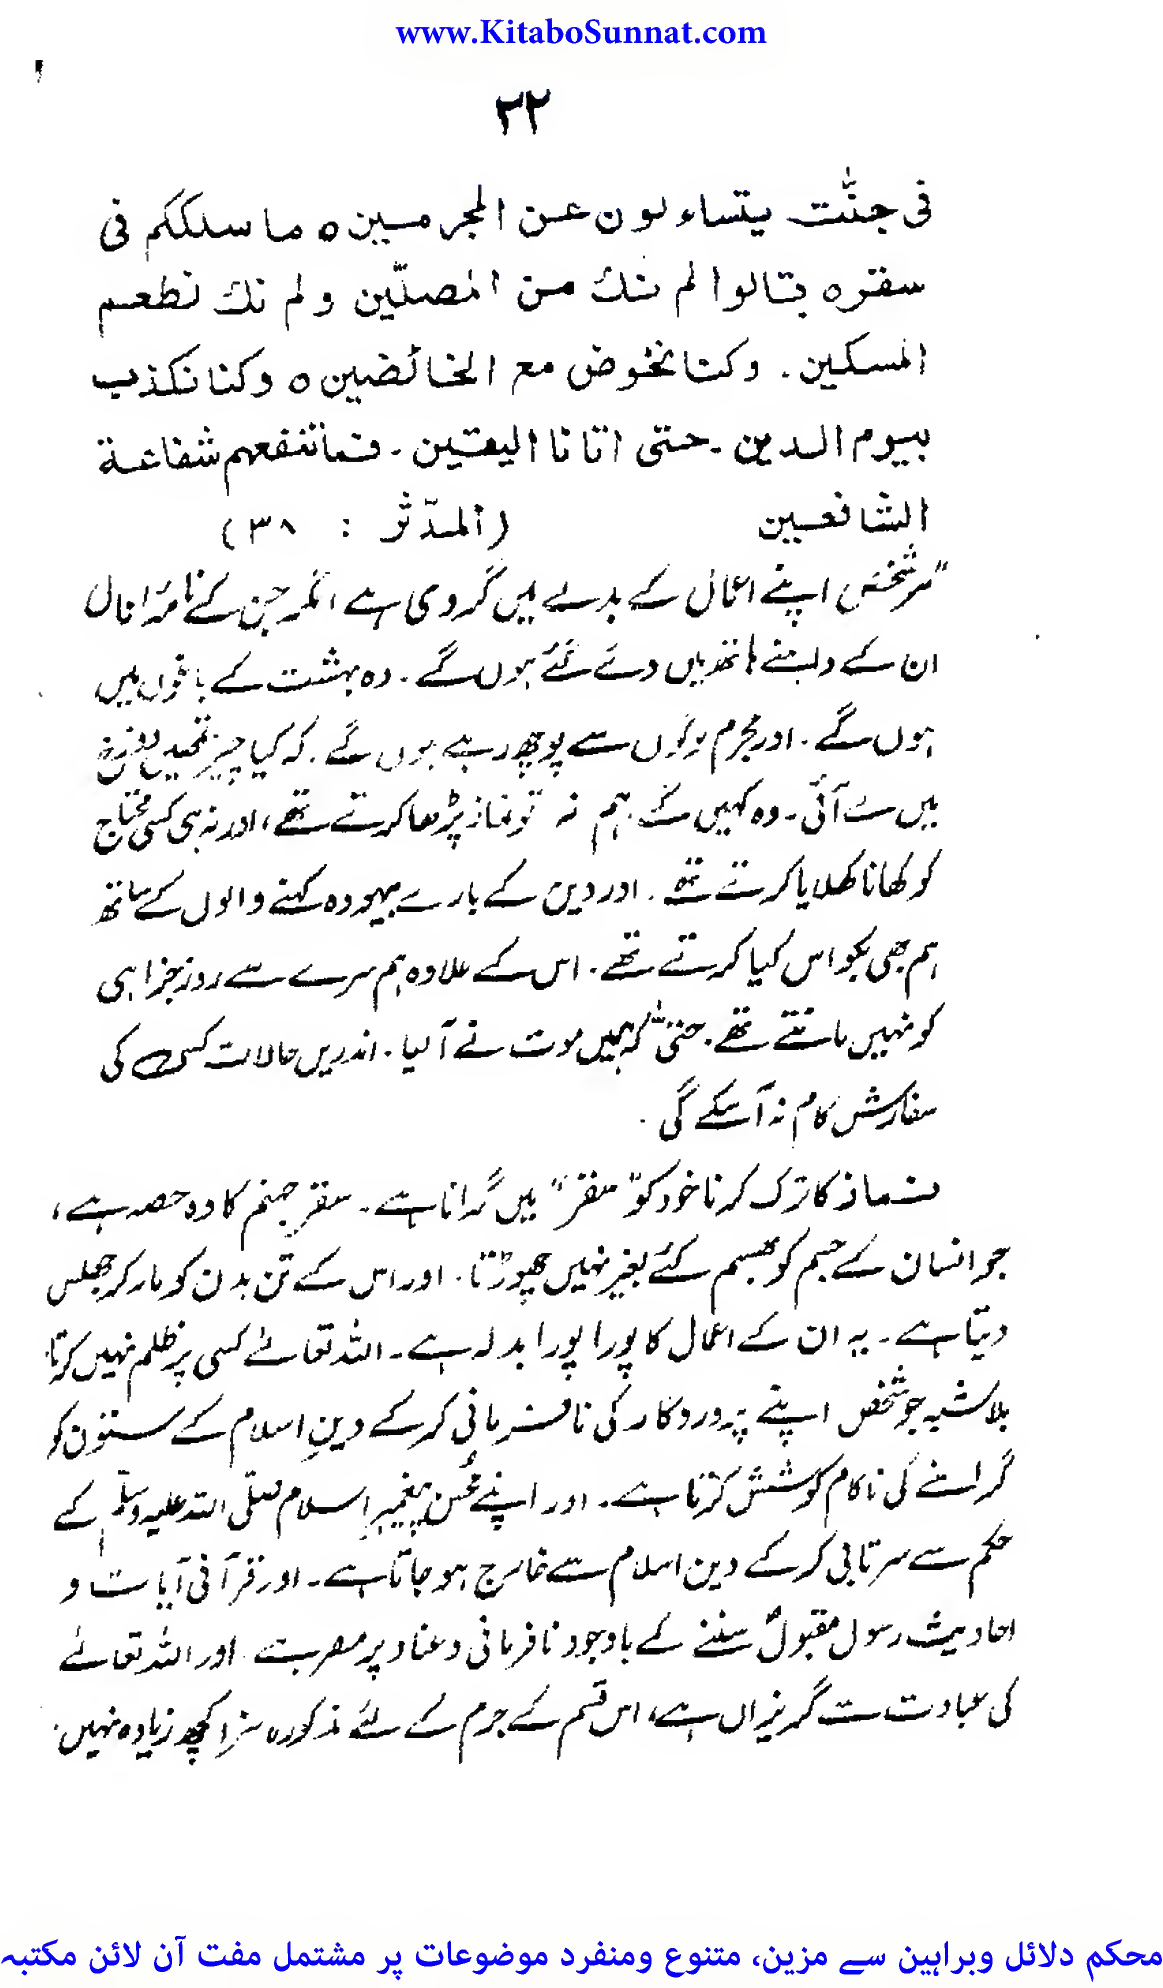 www.KitaboSunnat.com
۳۲
فی جنّٰت یتساءلون عن المجرمین ٥ ما سلککم فی
سقر ٥ قالوا لم نک من المصلّین ولم نک نطعم
المسکین۔ وکنا نخوض مع الخائضین ٥ وکنا نکذب
بیوم الدین۔ حتی اتانا الیقین۔ فما تنفعھم شفاعة
الشافعین (المدّثر : ۳۸)
”ہر شخص اپنے اعمال کے بدلے میں گروی ہے، مگر جن کے نامۂ اعمال
ان کے داہنے ہاتھ میں دئے گئے ہوں گے۔ وہ بہشت کے باغوں میں
ہوں گے۔ اور مجرم لوگوں سے پوچھ رہے ہوں گے۔ کہ کیا چیز تمھیں دوزخ
میں لے آئی۔ وہ کہیں گے ہم نہ تو نماز پڑھا کرتے تھے، اور نہ ہی کسی محتاج
کو کھانا کھلایا کرتے تھے۔ اور دین کے بارے بیہودہ کہنے والوں کے ساتھ
ہم بھی بکواس کیا کرتے تھے۔ اس کے علاوہ ہم سرے سے روز جزا ہی
کو نہیں مانتے تھے۔ حتیٰ کہ ہمیں موت نے آ لیا۔ اندریں حالات کسی کی
سفارش کام نہ آ سکے گی۔
نماز کا ترک کرنا خود کو ”سقر“ میں گرانا ہے۔ سقر جہنم کا وہ حصہ ہے،
جو انسان کے جسم کو بھسم کئے بغیر نہیں چھوڑتا۔ اور اس کے تن بدن کو مار کر جھلس
دیتا ہے۔ یہ ان کے اعمال کا پورا پورا بدلہ ہے۔ اللہ تعالٰے کسی پر ظلم نہیں کرتا
بلا شبہ جو شخص اپنے پروردگار کی نافرمانی کر کے دینِ اسلام کے ستون کو
گرانے کی ناکام کوشش کرتا ہے۔ اور اپنے محسن پیغمبرِ اسلام صلّی اللہ علیہ وسلّم کے
حکم سے سرتابی کر کے دین اسلام سے خارج ہو جاتا ہے۔ اور قرآنی آیات و
احادیث رسول مقبولؐ سننے کے باوجود نافرمانی و عناد پر مصر ہے۔ اور اللہ تعالٰے
کی عبادت سے گریزاں ہے، اس قسم کے جرم کے لئے مذکورہ سزا کچھ زیادہ نہیں۔
محکم دلائل وبراہین سے مزین، متنوع ومنفرد موضوعات پر مشتمل مفت آن لائن مکتبہ